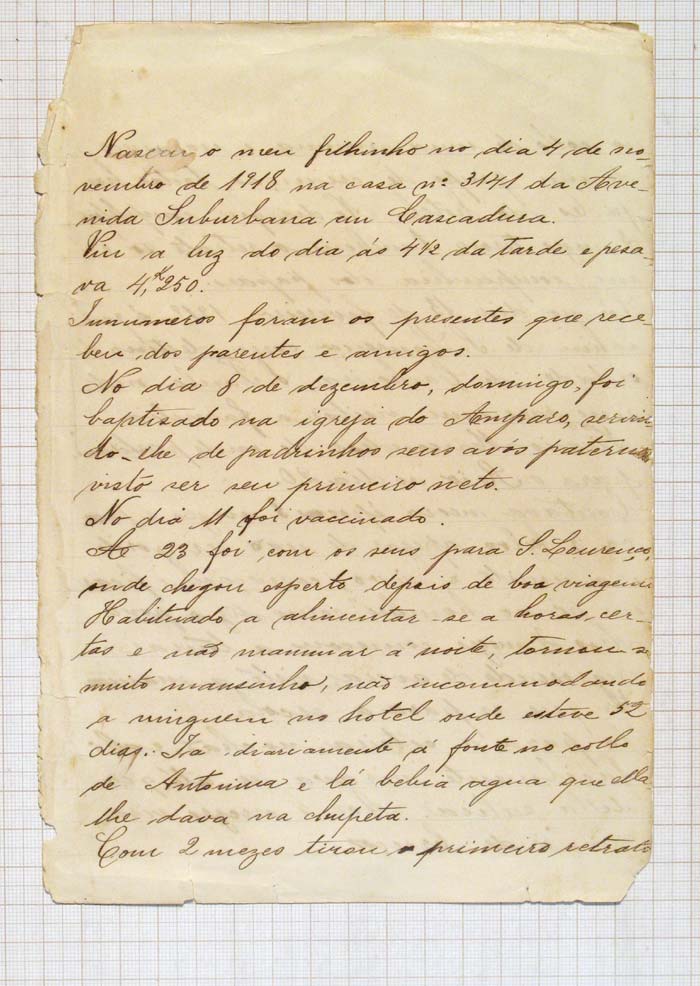 Nasceu o meu filhinho no dia 4 de no-
vembro de 1918 na casa nº 3141 da Ave-
nida Suburbana em Cascadura.
Viu a luz do dia ás 4 1/2 da tarde e pesa-
va 4,k250.
Innumeros foram os presentes que rece-
beu dos parentes e amigos.
No dia 8 de dezembro, domingo, foi
baptisado na igreja do Amparo, servin
do-lhe de padrinhos seus avós paternos
visto ser seu primeiro neto.
No dia 11 foi vaccinado.
A 23 foi com os seus para S. Lourenço,
onde chegou esperto depois de boa viagem
Habituado a alimentar-se a horas cer-
tas e não mammar á noite, tornou-se
muito mansinho, não incommodando
a ninguem no hotel onde esteve 52
dias. Ia diariamente á fonte no collo
de Antonina e lá bebia agua que ella
lhe dava na chupeta.
Com 2 mezes tirou o primeiro retrato